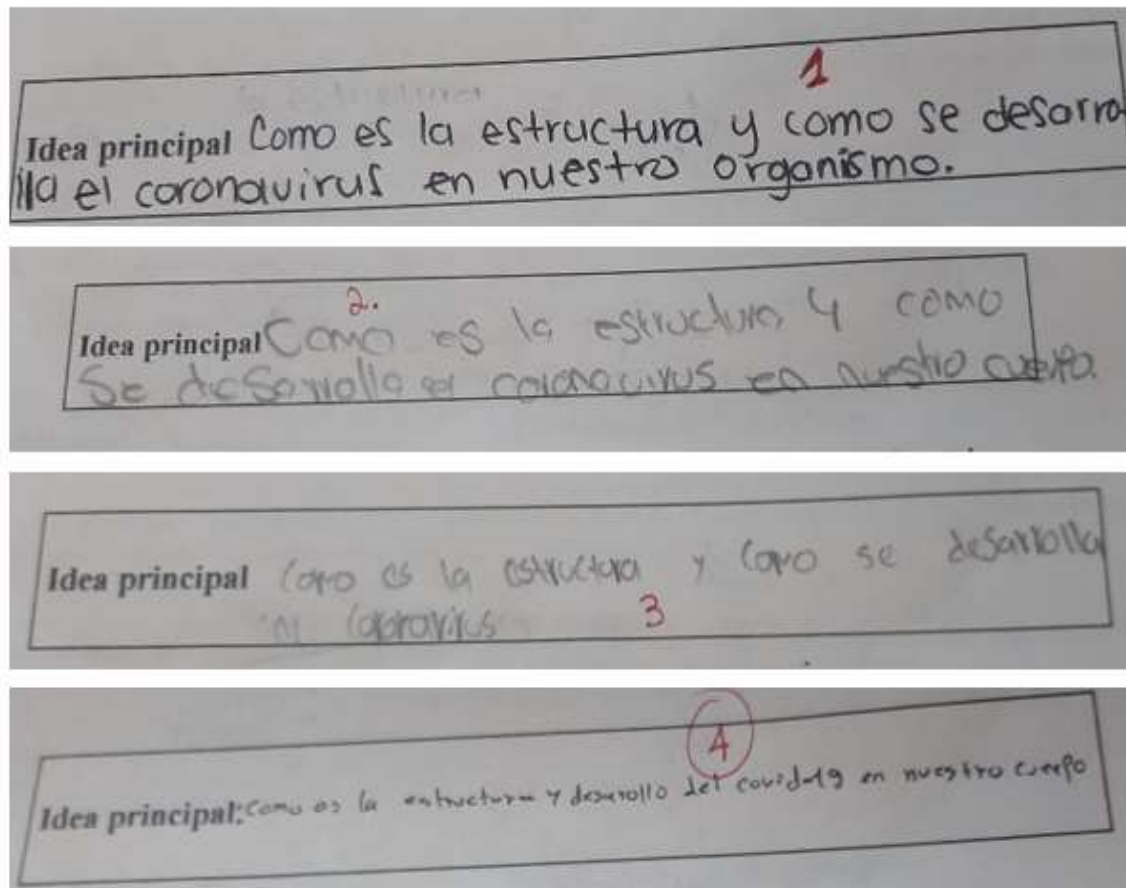 1
Idea principal Como es la estructura y como se desarro
lla el coronavirus en nuestro organismo.
2.
Idea principal Como es la estructura y como
se desarrolla el coronavirus en nuestro cuerpo.
Idea principal Como es la estructura y como se desarrolla
coronavirus 3
4
Idea principal: Como es la estructura y desarrollo del covid-19 en nuestro cuerpo